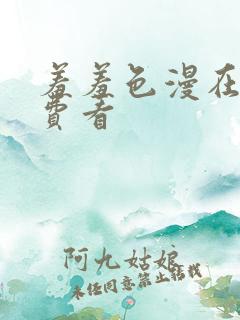 羞羞色漫在
费看
阿九姑娘
未经同意禁止转载